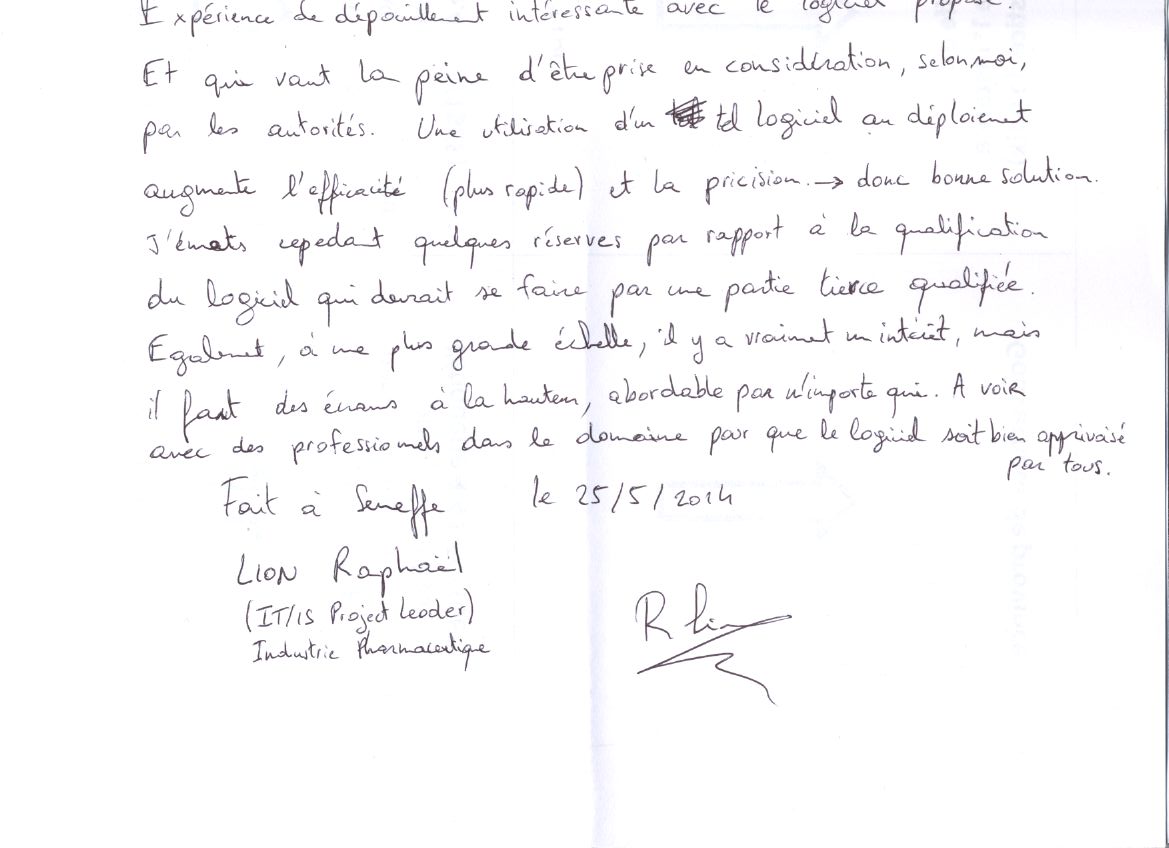 Expérience de dépouillement intéressante avec le logiciel proposé.
Et qui vaut la peine d'être prise en considération, selon moi,
par les autorités. Une utilisation d'un tel logiciel au déploiement
augmente l'efficacité (plus rapide) et la précision. → donc bonne solution.
J'émets cependant quelques réserves par rapport à la qualification
du logiciel qui devrait se faire par une partie tierce qualifiée.
Egalement, à une plus grande échelle, il y a vraiment un intérêt, mais
il faut des écrans à la hauteur, abordable par n'importe qui. A voir
avec des professionnels dans le domaine pour que le logiciel soit bien apprivoisé
par tous.
Fait à Seneffe le 25/5/2014
LION Raphaël
(IT/IS Project Leader)
Industrie Pharmaceutique
R Lion